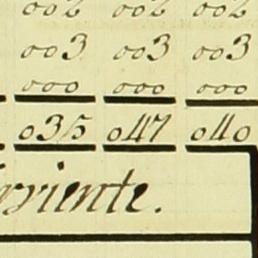 002 002 002
003 003 003
000 000 000
035 047 040